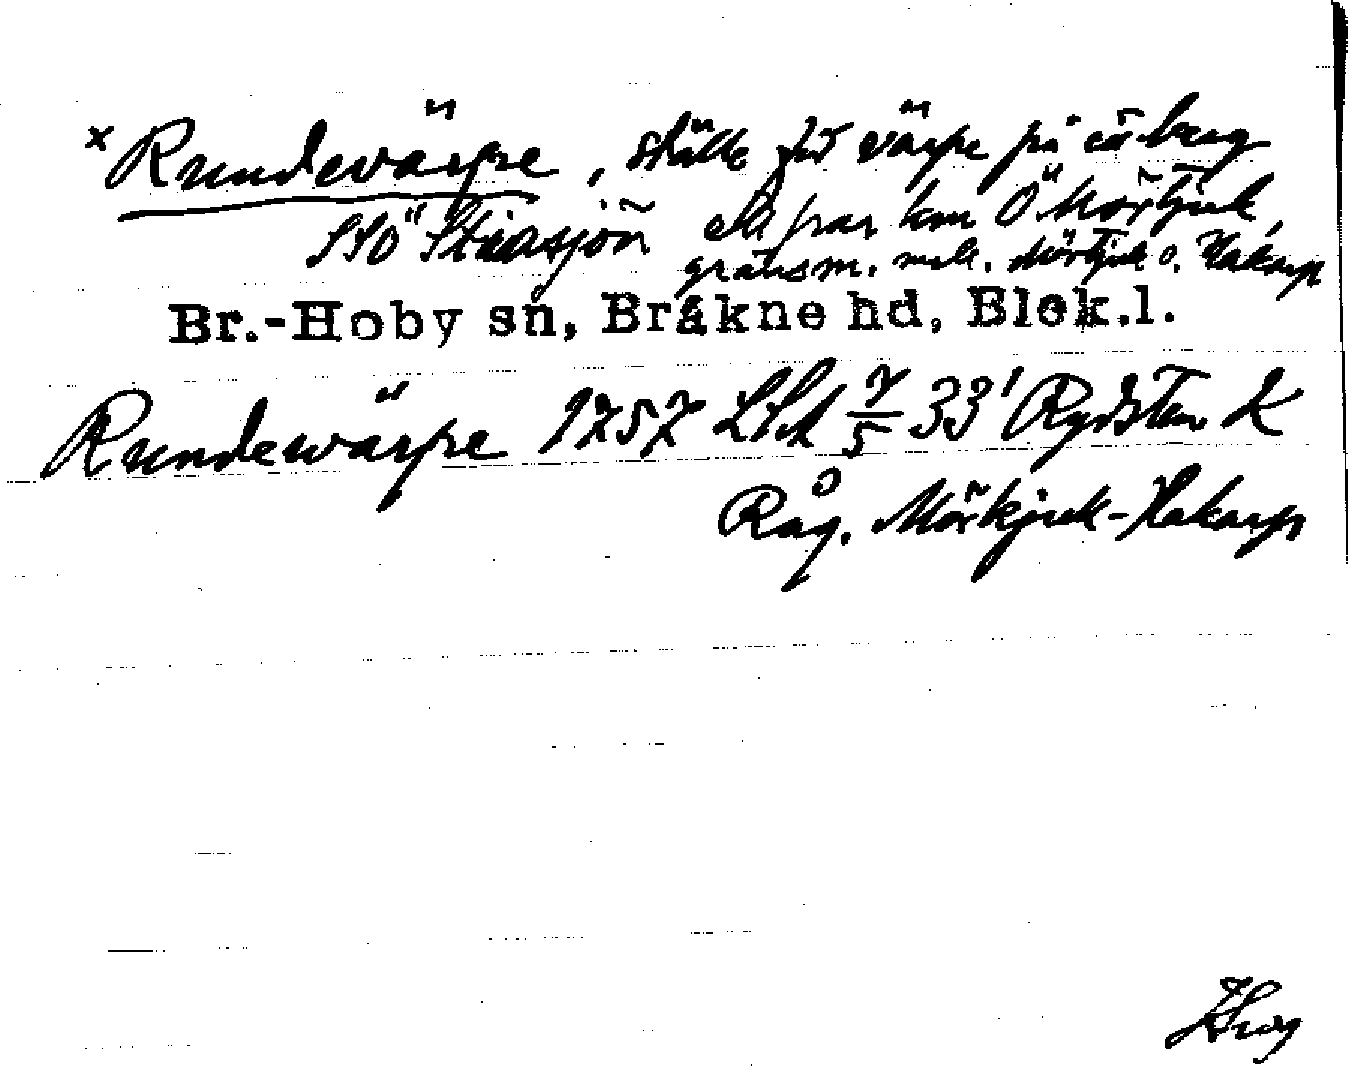 x Rundevärpe, ställe för värpe på ett berg
SSÖ Stiasjön ett par km Ö Mörtjuk,
gränsm. mell. Mörtjuk o. Hakarp
Br.-Hoby sn, Bräkne hd, Blek.l.
Rundewärpe 1757 LSA 7/5 33' Rydsten K
Råg. Mörkjuk-Hakarp